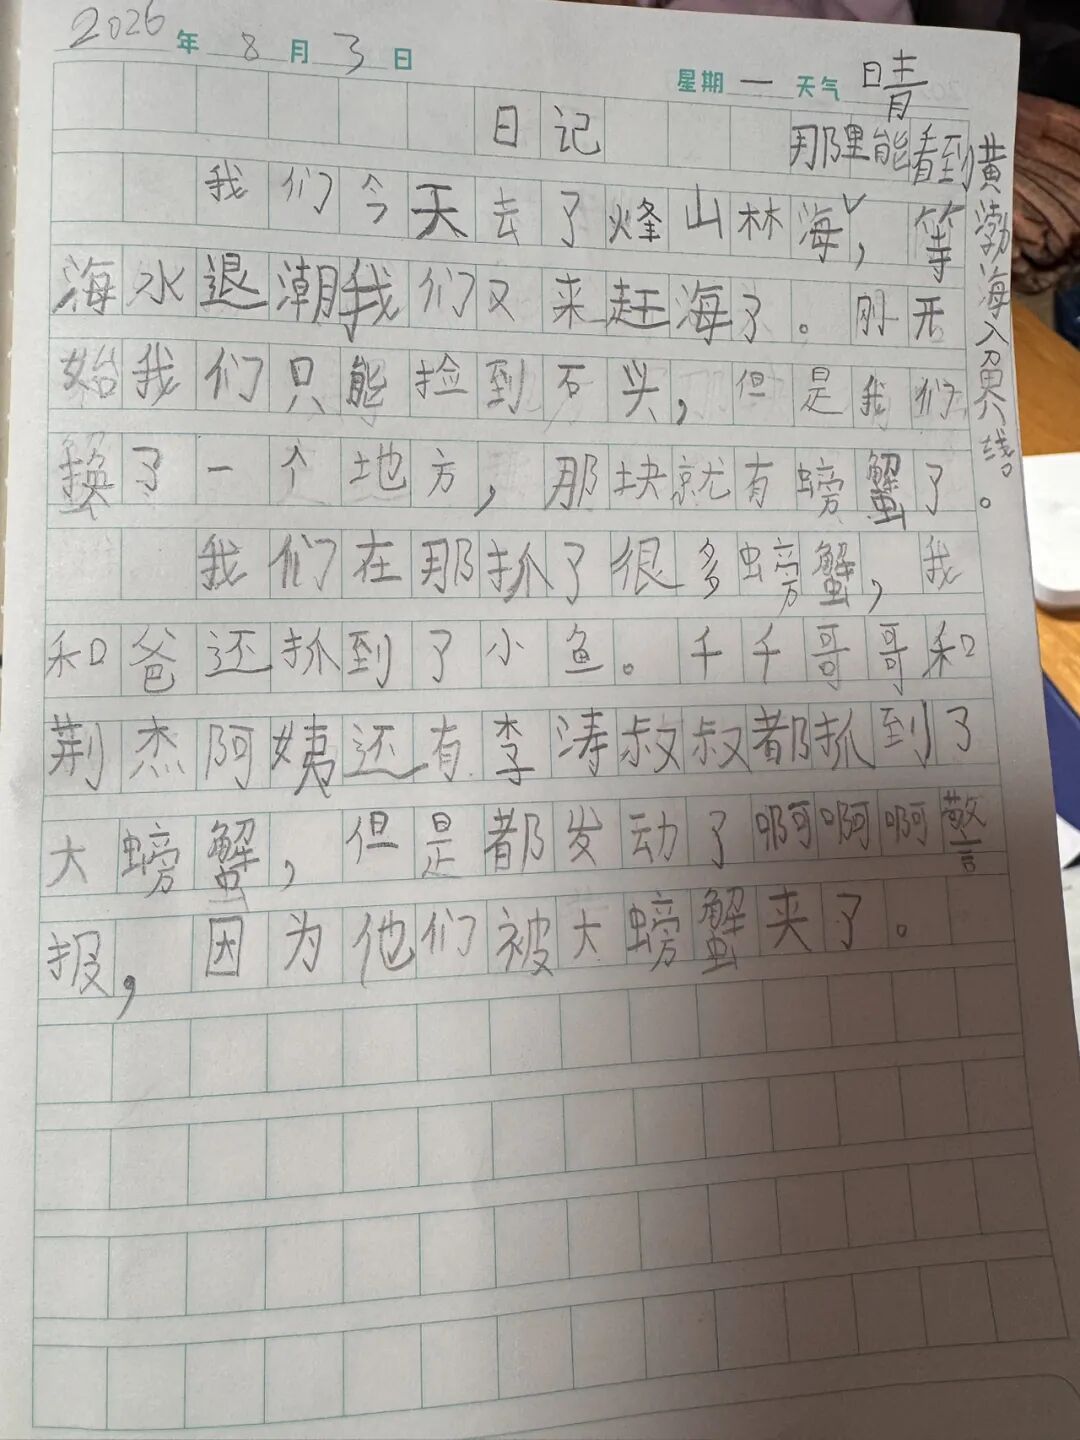 2026年8月3日 星期一 天气晴
日记
那里能看到黄渤海分界线。
我们今天去了烽山林海,等
海水退潮我们又来赶海了。刚开
始我们只能捡到石头,但是我们
换了一个地方,那块就有螃蟹了。
我们在那抓了很多螃蟹,我
和爸还抓到了小鱼。千千哥哥和
荆杰阿姨还有李涛叔叔都抓到了
大螃蟹,但是都发动了啊啊啊警
报,因为他们被大螃蟹夹了。